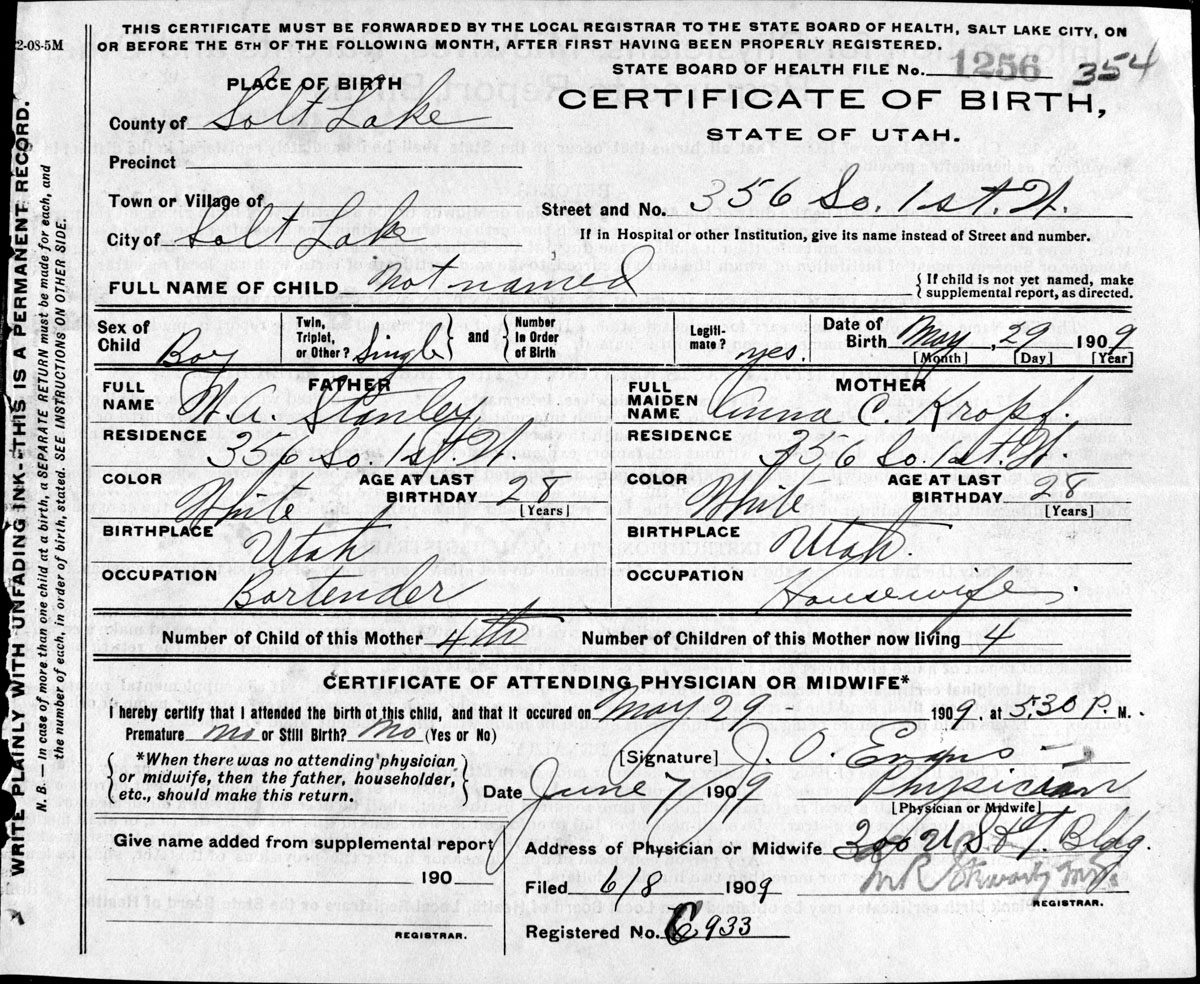 THIS CERTIFICATE MUST BE FORWARDED BY THE LOCAL REGISTRAR TO THE STATE BOARD OF HEALTH, SALT LAKE CITY, ON
OR BEFORE THE 5TH OF THE FOLLOWING MONTH, AFTER FIRST HAVING BEEN PROPERLY REGISTERED.
2-08-5M
STATE BOARD OF HEALTH FILE No. 1256 354
PLACE OF BIRTH
CERTIFICATE OF BIRTH,
STATE OF UTAH.
County of Salt Lake
Precinct
Town or Village of
Street and No. 356 So. 1st. W.
City of Salt Lake
If in Hospital or other Institution, give its name instead of Street and number.
FULL NAME OF CHILD not named
{ If child is not yet named, make
supplemental report, as directed.
Sex of Child Boy
Twin, Triplet, or Other? Single } and { Number in Order of Birth
Legiti-mate? yes.
Date of Birth May 29 1909
[Month] [Day] [Year]
FATHER
FULL NAME W. A. Stanley
MOTHER
FULL MAIDEN NAME Anna C.
RESIDENCE 356 So. 1st W
RESIDENCE 326 So. 1st. W
COLOR White
AGE AT LAST BIRTHDAY 28 [Years]
COLOR White
AGE AT LAST BIRTHDAY 28 [Years]
BIRTHPLACE Utah
BIRTHPLACE Utah
OCCUPATION Bartender
OCCUPATION Housewife
Number of Child of this Mother 4th Number of Children of this Mother now living 4
CERTIFICATE OF ATTENDING PHYSICIAN OR MIDWIFE*
I hereby certify that I attended the birth of this child, and that it occured on May 29 1909. at 5:30 P. M.
Premature No or Still Birth? No (Yes or No)
{ *When there was no attending physician
or midwife, then the father, householder,
etc., should make this return. }
[Signature] J. O. Evans
Date June 7 1909 Physician
[Physician or Midwife]
Give name added from supplemental report
190
REGISTRAR.
Address of Physician or Midwife 200 U S & T. Bldg.
Filed 6/8 1909
REGISTRAR.
Registered No. C 933
WRITE PLAINLY WITH UNFADING INK-THIS IS A PERMANENT RECORD.
N. B. — In case of more than one child at a birth, a SEPARATE RETURN must be made for each, and
the number of each, in order of birth, stated. SEE INSTRUCTIONS ON OTHER SIDE.